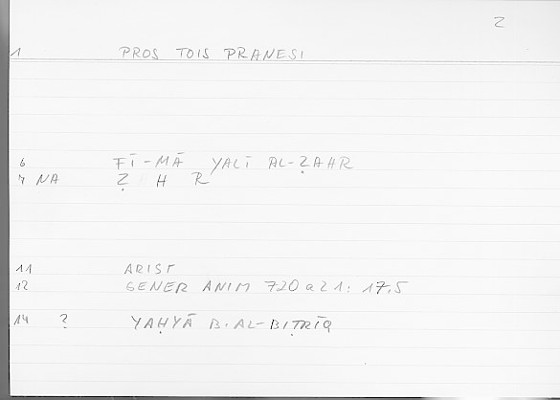 2
1 PROS TOIS PRANESI
6 FĪ-MĀ YALĪ AL-ẒAHR
7 NA Ẓ H R
11 ARIST
12 GENER ANIM 720 a 21: 17.5
14 ? YAḤYĀ B. AL-BIṬRĪQ